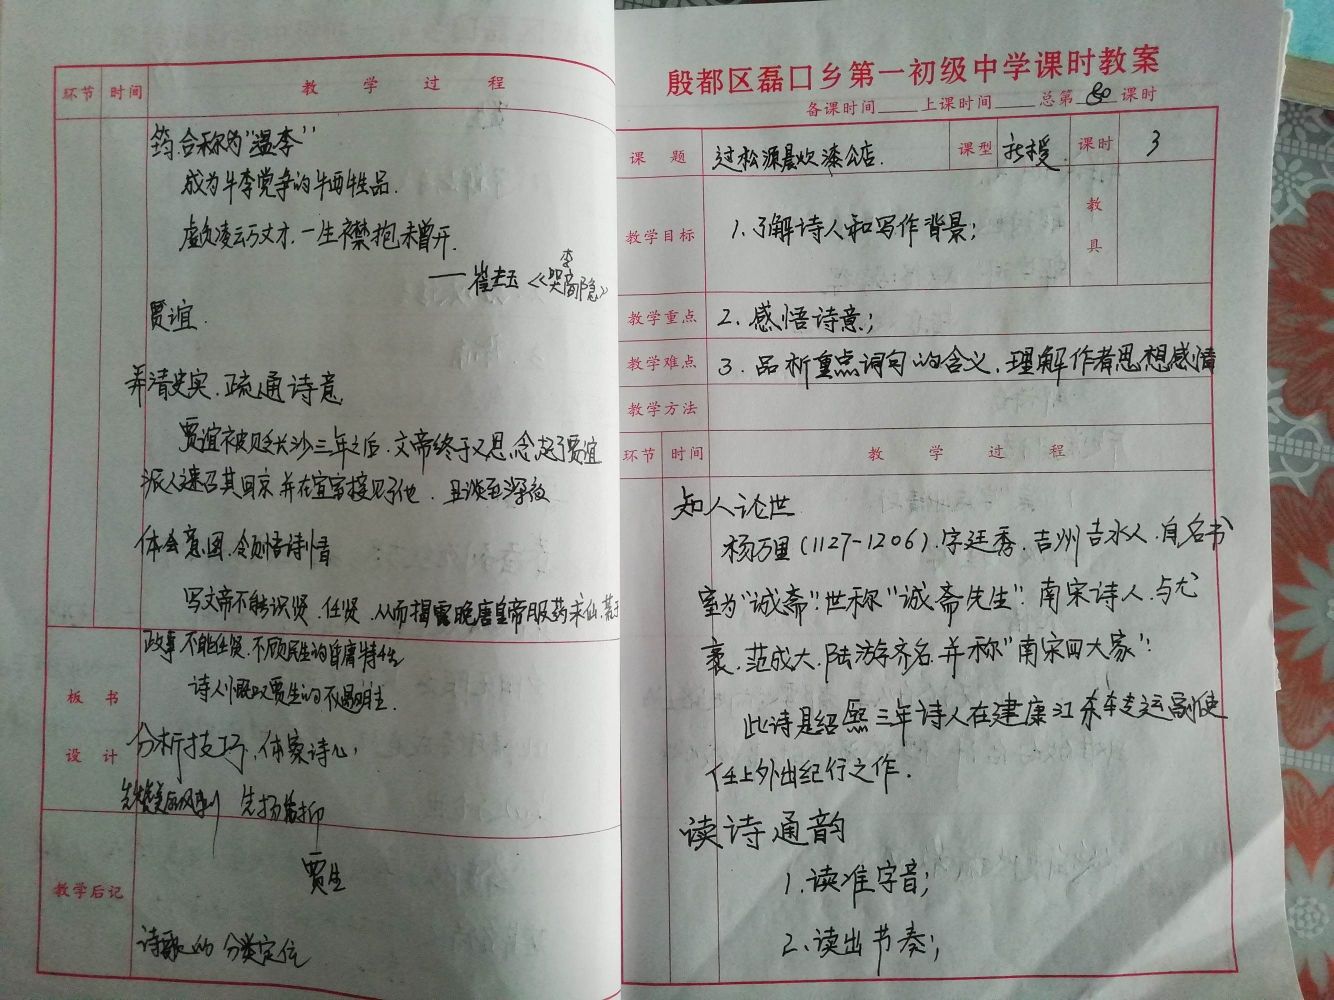 环节 时间 教学过程
筠合称为“温李”
成为牛李党争的牺牲品.
虚负凌云万丈才,一生襟抱未曾开.
——崔珏《哭李商隐》
贾谊.
弄清史实,疏通诗意
贾谊被贬长沙三年之后,文帝终于又思念起了贾谊
派人速召其回京并在宣室接见了他.且谈至深夜
体会意图,领悟诗情
写文帝不能识贤、任贤,从而揭露晚唐皇帝服药求仙,荒于
政事不能任贤,不顾民生的昏庸特性
诗人慨叹贾生的不遇明主.
板书
设计
分析技巧,体察诗心,
先赞美后讽刺 先扬后抑
贾生
教学后记
诗歌的分类定位
殷都区磊口乡第一初级中学课时教案
备课时间 上课时间 总第 课时
课题 过松源晨炊漆公店. 课型 新授 课时 3
教学目标 1.了解诗人和写作背景; 教具
教学重点 2.感悟诗意;
教学难点 3.品析重点词句的含义,理解作者思想感情
教学方法
环节 时间 教学过程
知人论世
杨万里(1127-1206).字廷秀,吉州吉水人,自名书
室为“诚斋”.世称“诚斋先生”.南宋诗人.与尤
袤.范成大.陆游齐名.并称“南宋四大家”.
此诗是绍熙三年诗人在建康江东转运副使
任上外出纪行之作.
读诗通韵
1.读准字音;
2.读出节奏;